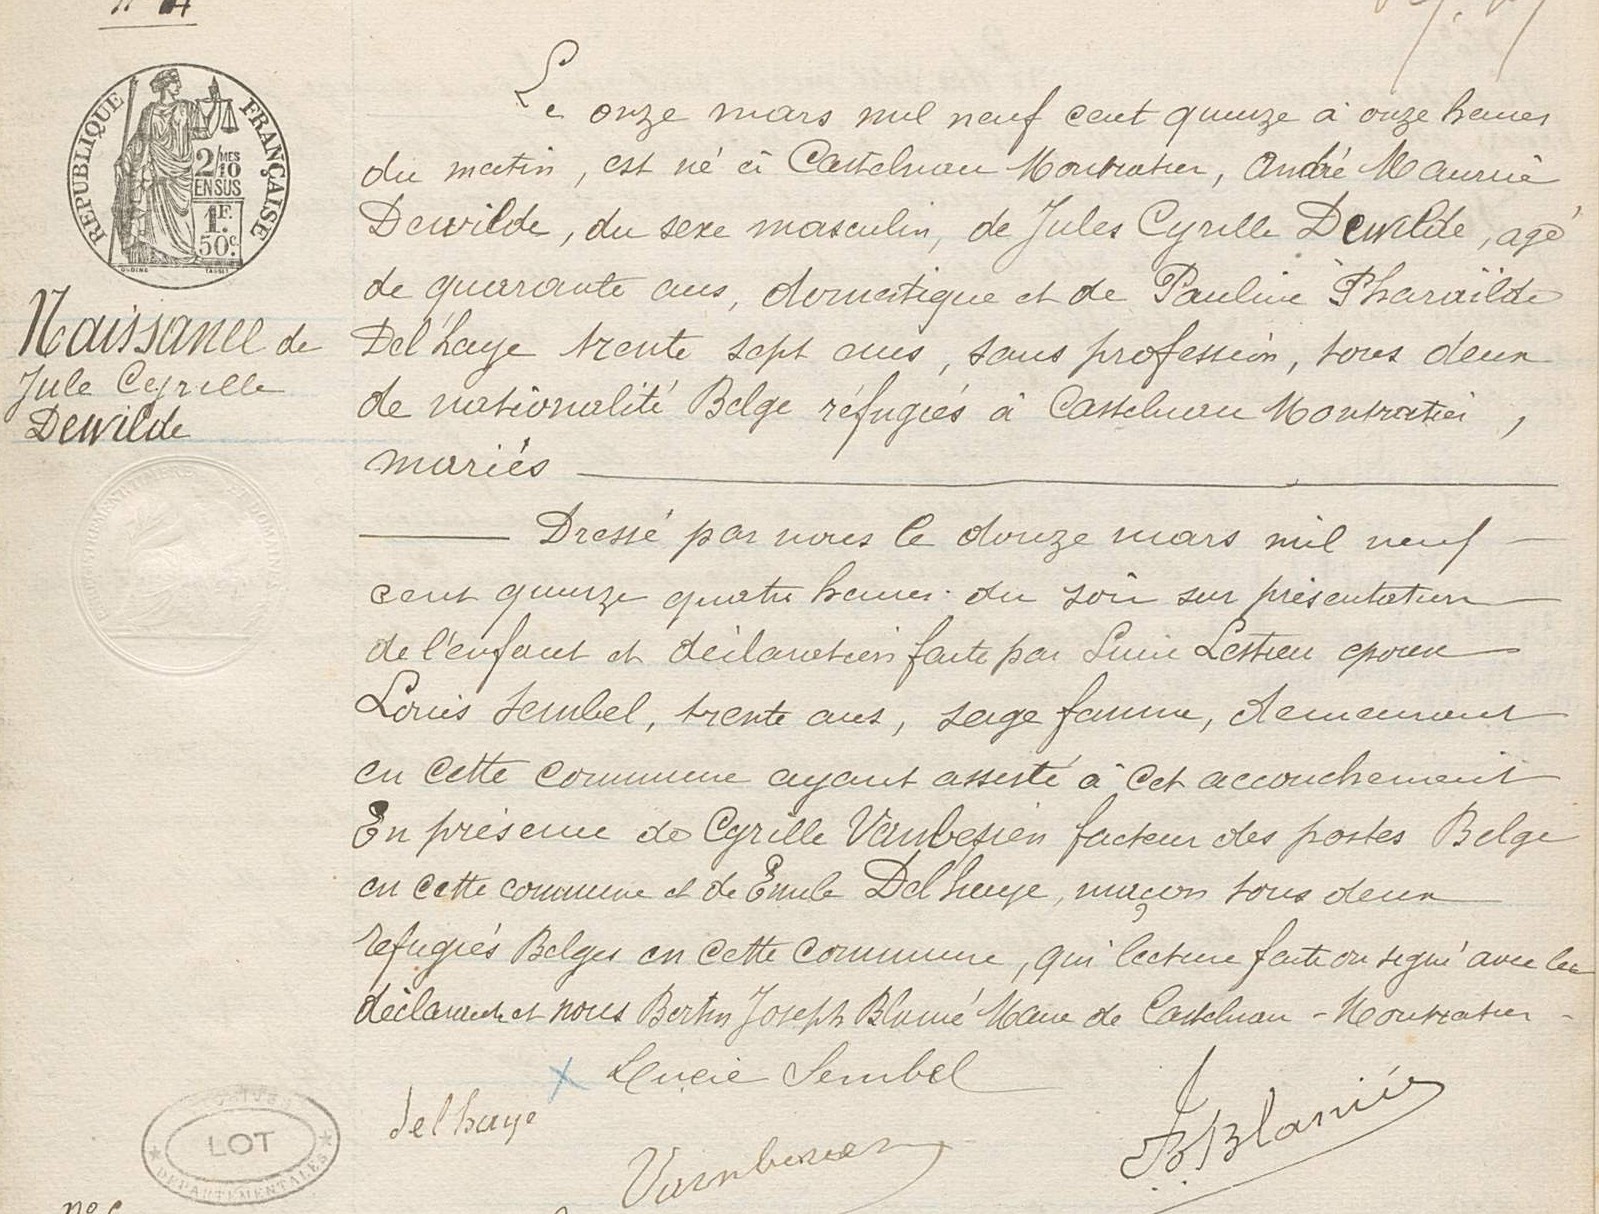 RÉPUBLIQUE FRANÇAISE
2/MES
10
EN SUS
1F.
50c.
Naissance de
Jule Cyrille
Dewilde
Le onze mars mil neuf cent quinze à onze heures
du matin, est né à Castelnau Montratier, André Maurice
Dewilde, du sexe masculin, de Jules Cyrille Dewilde, agé
de quarante ans, domestique et de Pauline Pharaïlde
Del'haye trente sept ans, sans profession, tous deux
de nationalité Belge réfugiés à Castelnau Montratier,
mariés
Dressé par nous le douze mars mil neuf
cent quinze quatre heures du soir sur présentation
de l'enfant et déclaration faite par Lucie Lestieu epouse
Louis Sembel, trente ans, sage femme, demeurant
en cette commune ayant assisté à cet accouchement
En présence de Cyrille Vanbesien facteur des postes Belge
en cette commune et de Emile Delhaye, maçon tous deux
refugiés Belges en cette commune, qui lecture faite on signé avec les
déclarante et nous Bertin Joseph Blanié Maire de Castelnau - Montratier -
Lucie Sembel
delhaye
Vambesien
JB Blanié
ARCHIVES
LOT
DÉPARTEMENTALES